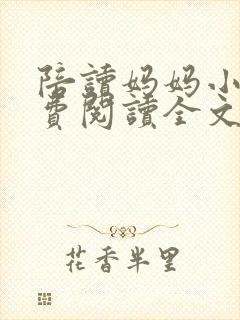 陪讀妈妈小
費閱讀全文
花香半里